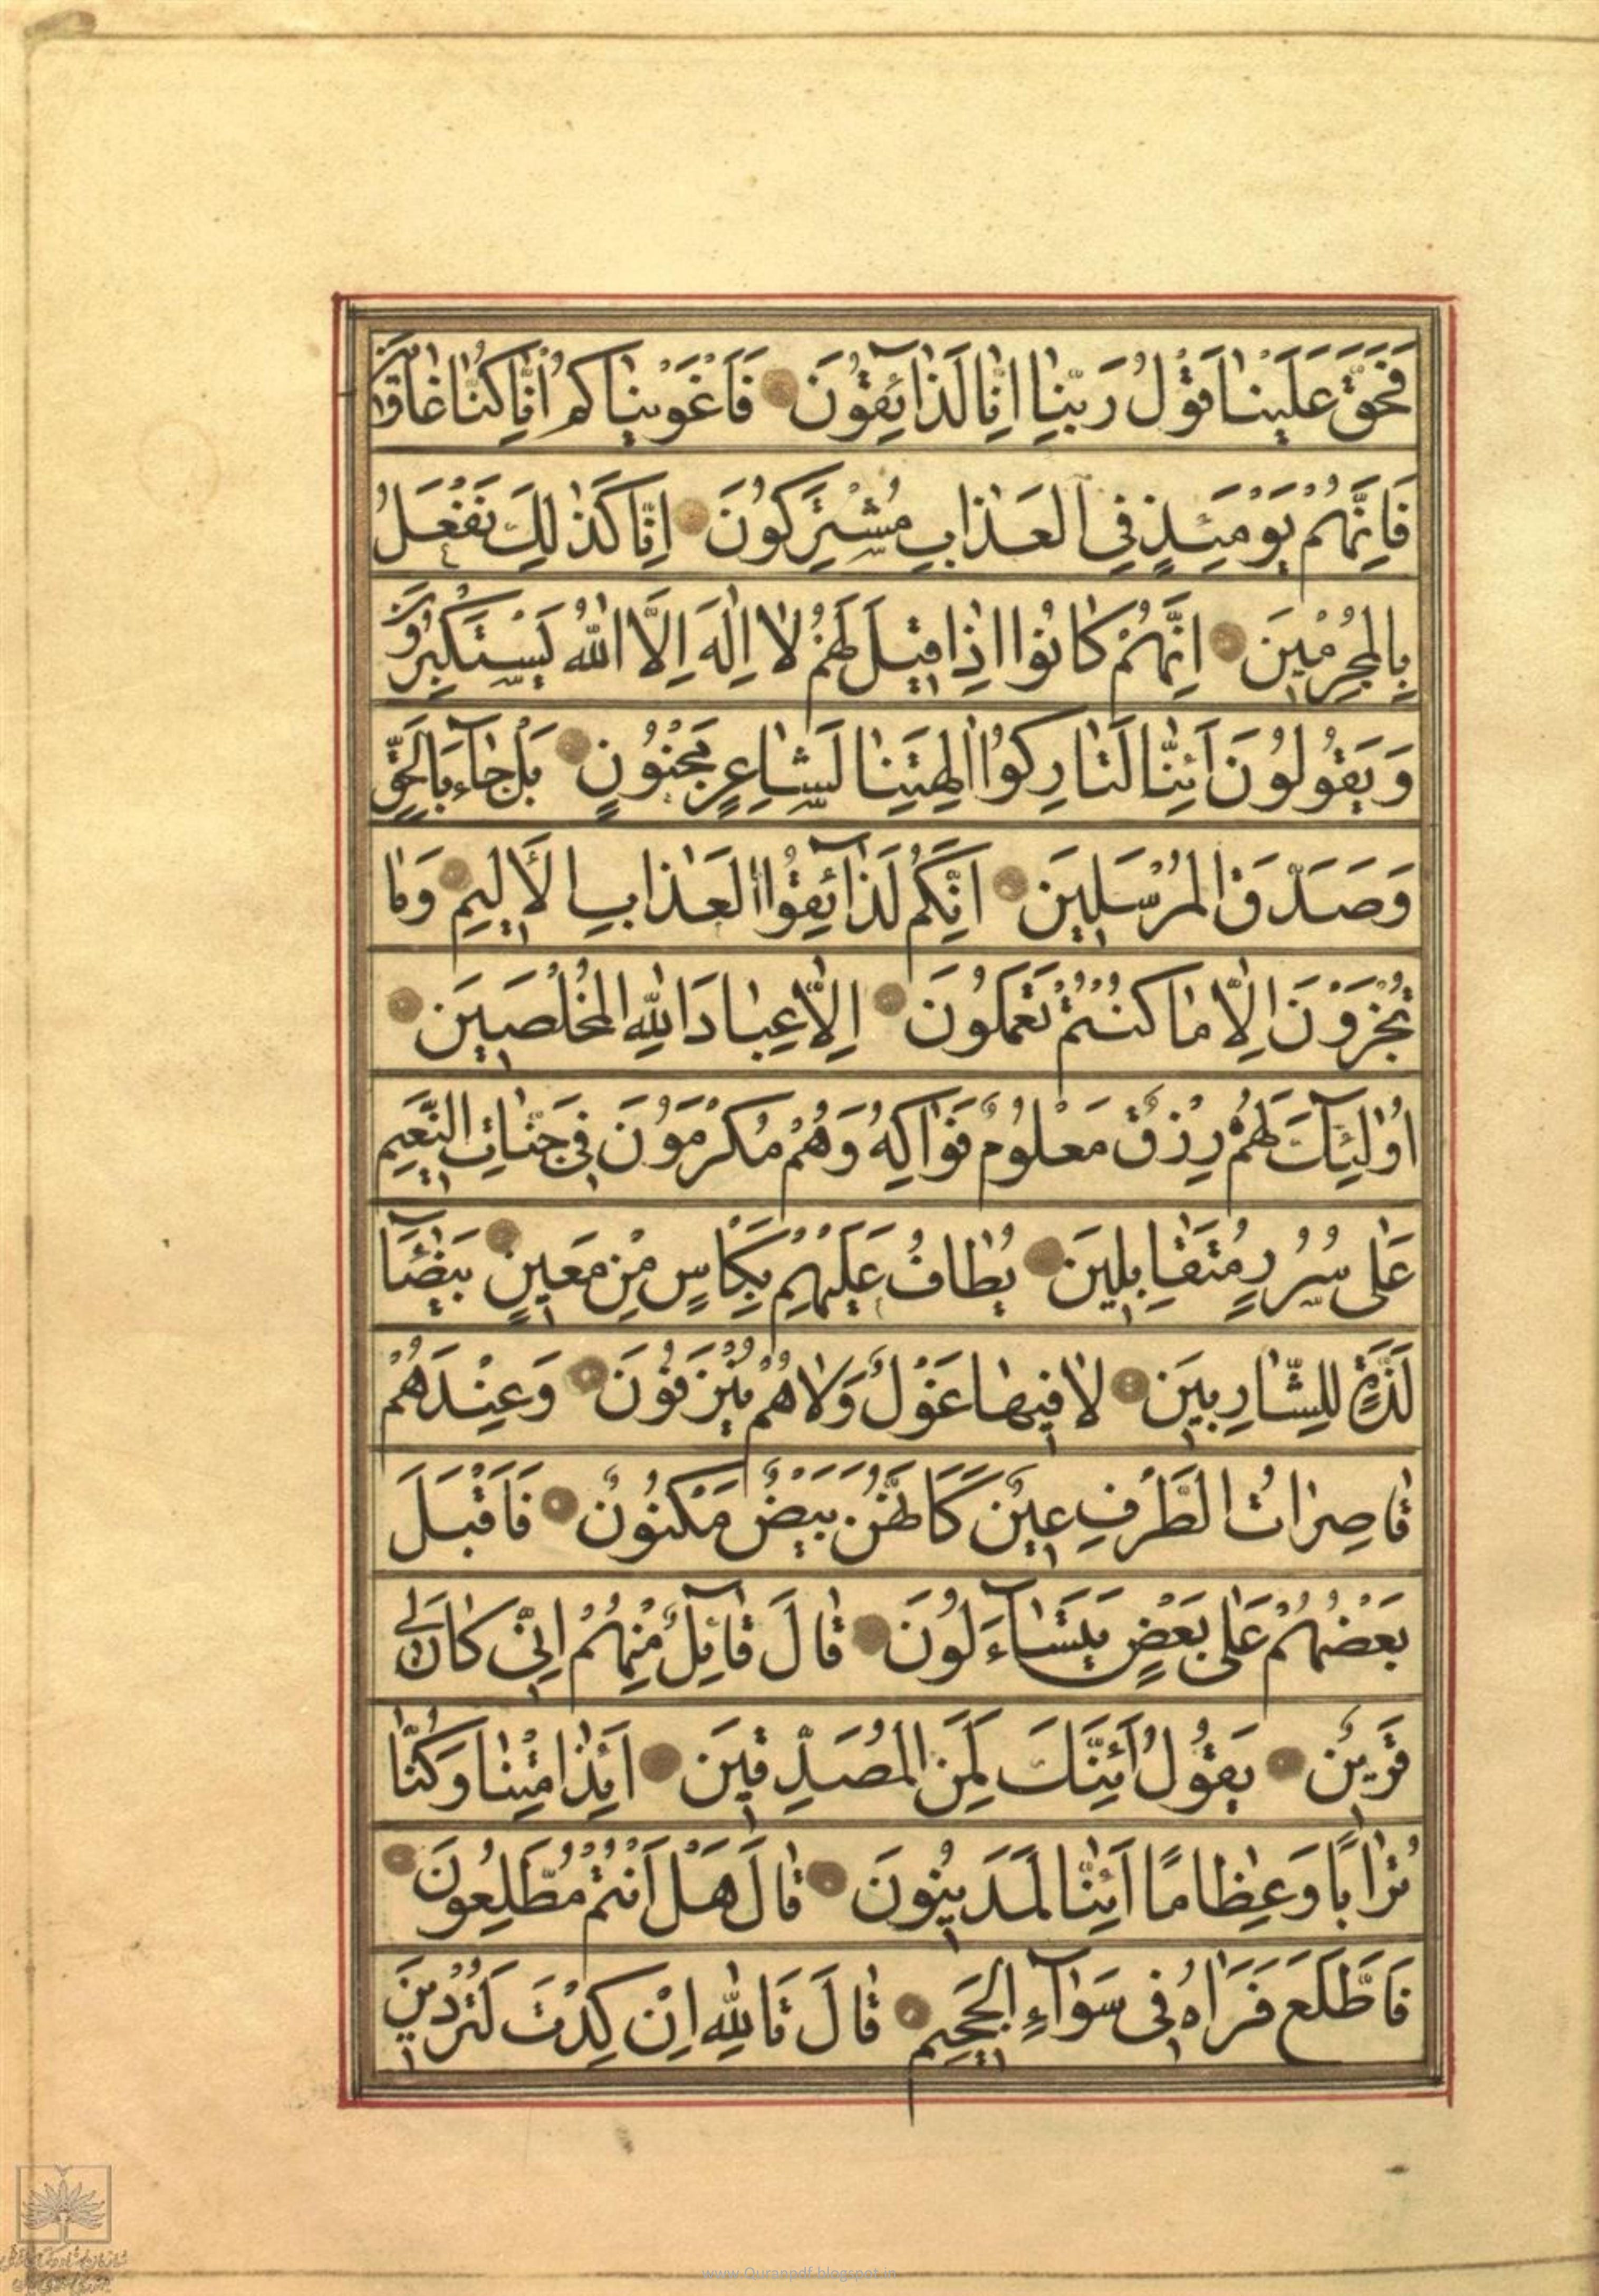 فَحَقَّ عَلَيْنٰا قَوْلُ رَبِّنٰا اِنّٰا لَذٰآئِقُونَ فَاَغْوَيْنٰاكُمْ اِنّٰا كُنّٰا غٰاوٖينَ
فَاِنَّهُمْ يَوْمَئِذٍ فِي الْعَذٰابِ مُشْتَرِكُونَ اِنّٰا كَذٰلِكَ نَفْعَلُ
بِالْمُجْرِمٖينَ اِنَّهُمْ كٰانُوا اِذٰا قٖيلَ لَهُمْ لٰا اِلٰهَ اِلَّا اللّٰهُ يَسْتَكْبِرُونَ
وَيَقُولُونَ اَئِنّٰا لَتٰارِكُوا اٰلِهَتِنٰا لِشٰاعِرٍ مَجْنُونٍ بَلْ جٰآءَ بِالْحَقِّ
وَصَدَّقَ الْمُرْسَلٖينَ اِنَّكُمْ لَذٰآئِقُوا الْعَذٰابِ الْاَلٖيمِ وَمٰا
تُجْزَوْنَ اِلّٰا مٰا كُنْتُمْ تَعْمَلُونَ اِلّٰا عِبٰادَ اللّٰهِ الْمُخْلَصٖينَ
اُولٰٓئِكَ لَهُمْ رِزْقٌ مَعْلُومٌ فَوٰاكِهُ وَهُمْ مُكْرَمُونَ فٖي جَنّٰاتِ النَّعٖيمِ
عَلٰى سُرُرٍ مُتَقٰابِلٖينَ يُطٰافُ عَلَيْهِمْ بِكَاْسٍ مِنْ مَعٖينٍ بَيْضٰٓاءَ
لَذَّةٍ لِلشّٰارِبٖينَ لٰا فٖيهٰا غَوْلٌ وَلٰا هُمْ يُنْزَفُونَ وَعِنْدَهُمْ
قٰاصِرٰاتُ الطَّرْفِ عٖينٌ كَاَنَّهُنَّ بَيْضٌ مَكْنُونٌ فَاَقْبَلَ
بَعْضُهُمْ عَلٰى بَعْضٍ يَتَسٰآءَلُونَ قٰالَ قٰآئِلٌ مِنْهُمْ اِنّٖي كٰانَ لٖي
قَرٖينٌ يَقُولُ اَئِنَّكَ لَمِنَ الْمُصَدِّقٖينَ اَئِذٰا مِتْنٰا وَكُنّٰا
تُرٰابًا وَعِظٰامًا اَئِنّٰا لَمَدٖينُونَ قٰالَ هَلْ اَنْتُمْ مُطَّلِعُونَ
فَاطَّلَعَ فَرَاٰهُ فٖي سَوٰآءِ الْجَحٖيمِ قٰالَ تَاللّٰهِ اِنْ كِدْتَ لَتُرْدٖينِ
www.Quranpdf.blogspot.in